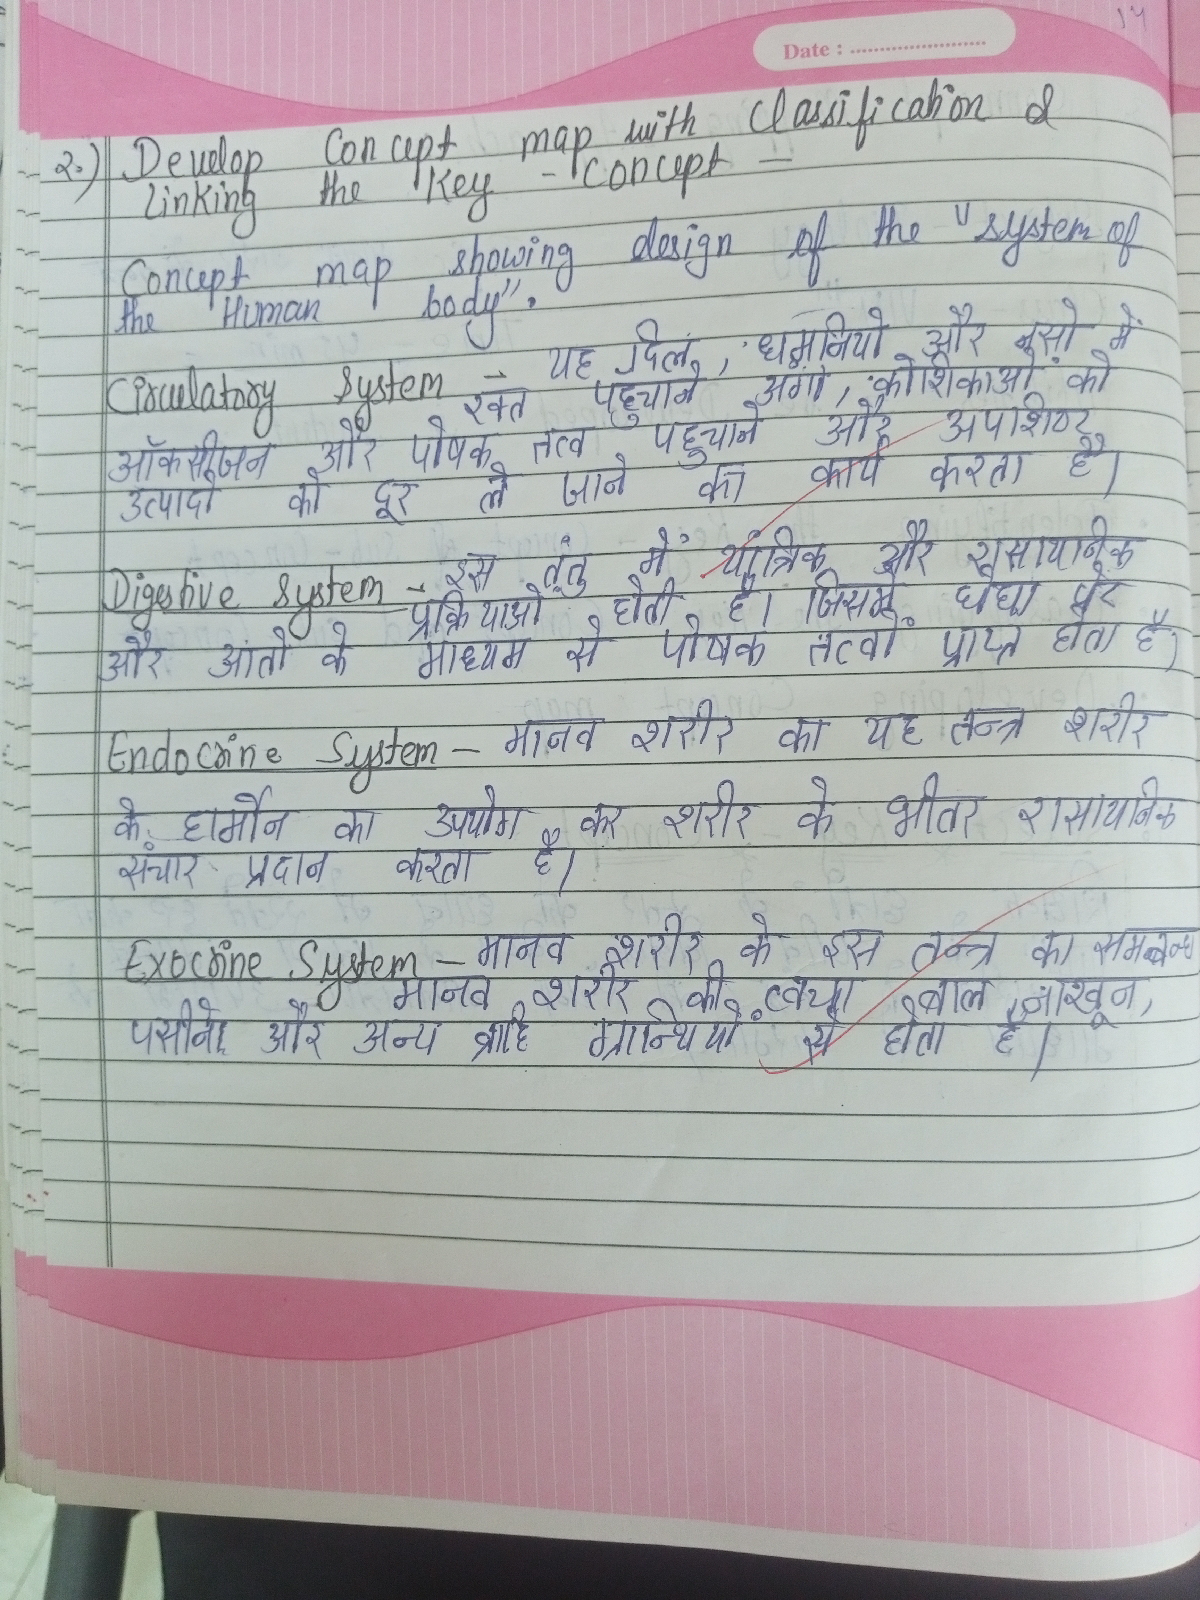 Date : ........................
2.) Develop Concept map with classification &
linking the Key - Concept -
Concept map showing design of the "system of
the Human body".
Circulatory System - यह दिल, धमनियो और नसो में
रक्त पहुचाने अंगो, कोशिकाओं को
ऑक्सीजन और पोषक तत्व पहुचाने और अपशिष्ट
उत्पादो को दूर ले जाने का कार्य करता है।
Digestive System - इस तंतु में यांत्रिक और रासायनिक
प्रक्रियाओं होती है। जिसमे घेघा पेट
और आंतो के माध्यम से पोषक तत्वों प्राप्त होता है।
Endocrine System - मानव शरीर का यह तन्त्र शरीर
के हार्मोन का उपयोग कर शरीर के भीतर रासायनिक
संचार प्रदान करता है।
Exocrine System - मानव शरीर के इस तन्त्र का सम्बन्ध
मानव शरीर की त्वचा, बाल, नाखून,
पसीने और अन्य ग्रन्थियों से होता है।